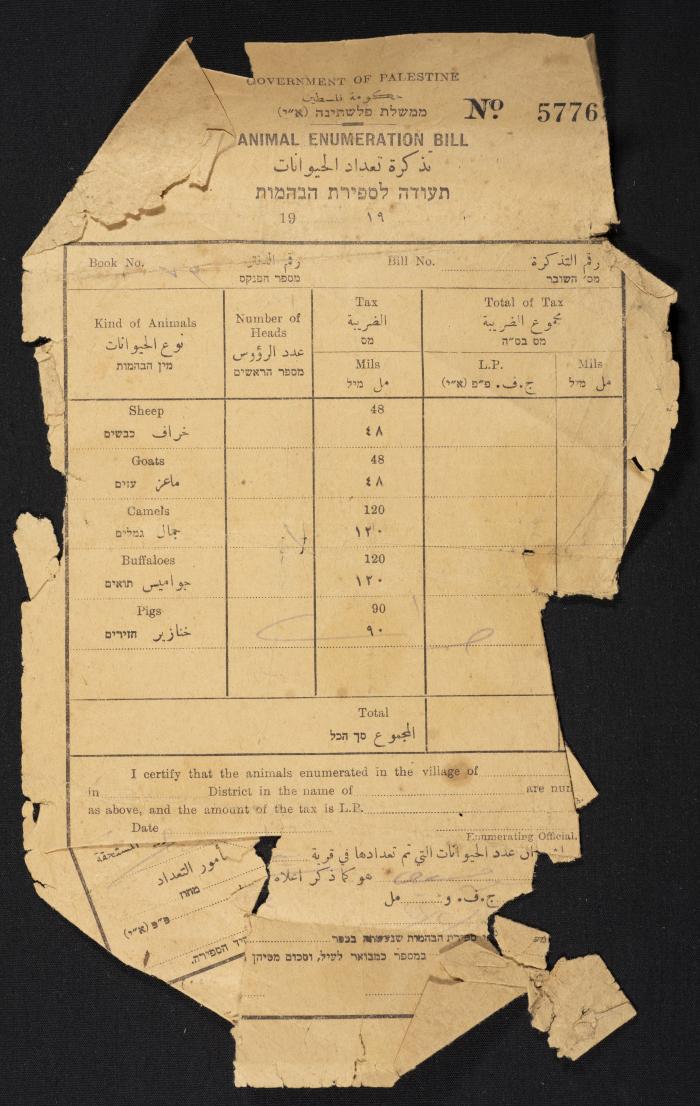 GOVERNMENT OF PALESTINE
حكومة فلسطين
ממשלת פלשתינה (א״י)
No 5776
ANIMAL ENUMERATION BILL
تذكرة تعداد الحيوانات
תעודה לספירת הבהמות
19 ١٩
Book No. رقم الدفتر Bill No. رقم التذكرة
מספר הפנקס מס׳ השובר
Kind of Animals Number of Heads Tax Total of Tax
نوع الحيوانات عدد الرؤوس الضريبة مجموع الضريبة
מין הבהמות מספר הראשים מס מס בס״ה
Mils L.P. Mils
مل מיל ج.ف. פ״פ (א״י) مل מיל
Sheep 48
خراف כבשים ٤٨
Goats 48
ماعز עזים ٤٨
Camels 120
جمال גמלים ١٢٠
Buffaloes 120
جواميس תואים ١٢٠
Pigs 90
خنازير חזירים ٩٠
Total
المجموع סך הכל
I certify that the animals enumerated in the village of
in District in the name of are num
as above, and the amount of the tax is L.P.
Date
Enumerating Official.
ان عدد الحيوانات التي تم تعدادها في قرية
هو كما ذكر اعلاه
ج.ف. و مل
المستحقة
مأمور التعداد
מחוז
פ״פ (א״י)
הספירה.
ספירת הבהמות שנעשתה בכפר
במספר כמבואר לעיל, וסכום מסיהן